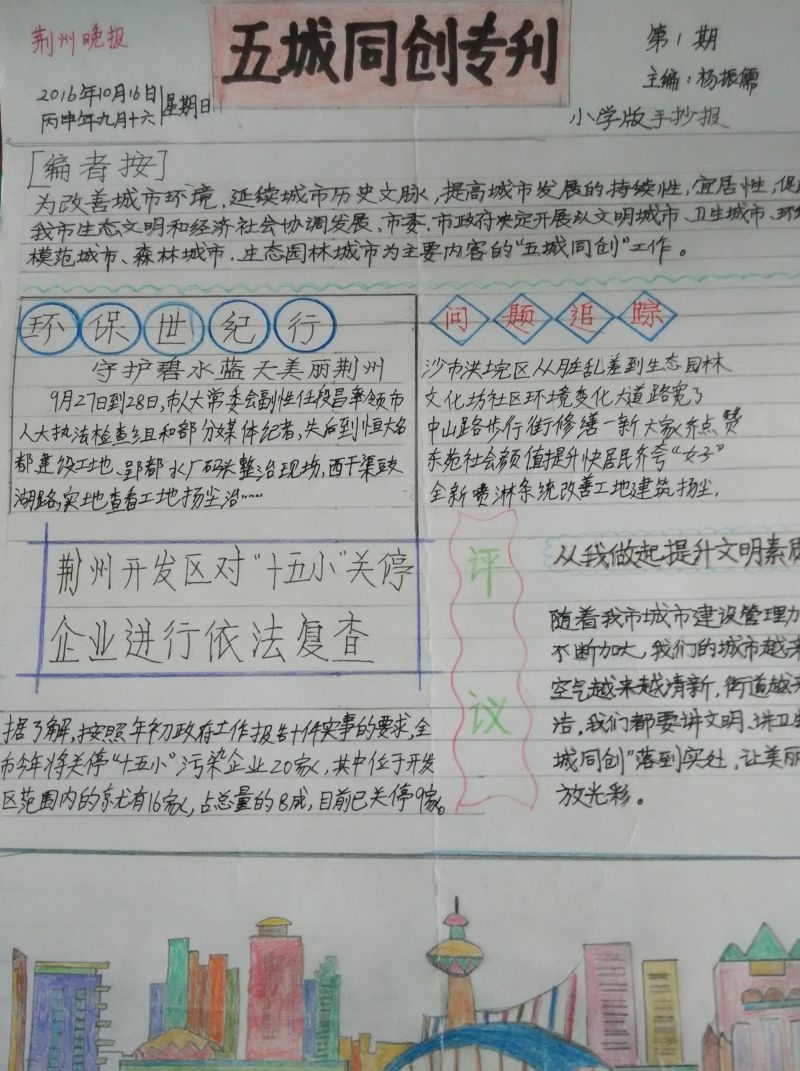 荆州晚报
五城同创专刊
第1期
主编:杨振儒
2016年10月16日
丙申年九月十六
星期日
小学版手抄报
[编者按]
为改善城市环境,延续城市历史文脉,提高城市发展的持续性,宜居性,促
我市生态文明和经济社会协调发展,市委,市政府决定开展以文明城市、卫生城市、环
模范城市、森林城市.生态园林城市为主要内容的“五城同创”工作。
环保世纪行
守护碧水蓝天美丽荆州
9月27日到28日,市人大常委会副性任段昌奉领市
人大执法检查组和部分媒体记者,先后到恒大名
都建设工地、郢都水厂码头整治现场,西干渠
湖路,实地查看工地扬尘治……
问题追踪
沙市洪垸区从脏乱差到生态园林
文化坊社区环境变化大道路宽了
中山路步行街修缮一新大家齐点赞
东苑社会颜值提升快居民齐夸“女子”
全新喷淋系统改善工地建筑扬尘.
荆州开发区对“十五小”关停
企业进行依法复查
据了解,按照年初政府工作报告十件实事的要求,全
市今年将关停“十五小”污染企业20家,其中位于开发
区范围内的就有16家,占总量的8成,目前已关停9家。
评议
从我做起提升文明素质
随着我市城市建设管理力
不断加大,我们的城市越来
空气越来越清新,街道越来
洁,我们都要讲文明、讲卫生
城同创”落到实处,让美丽
放光彩。